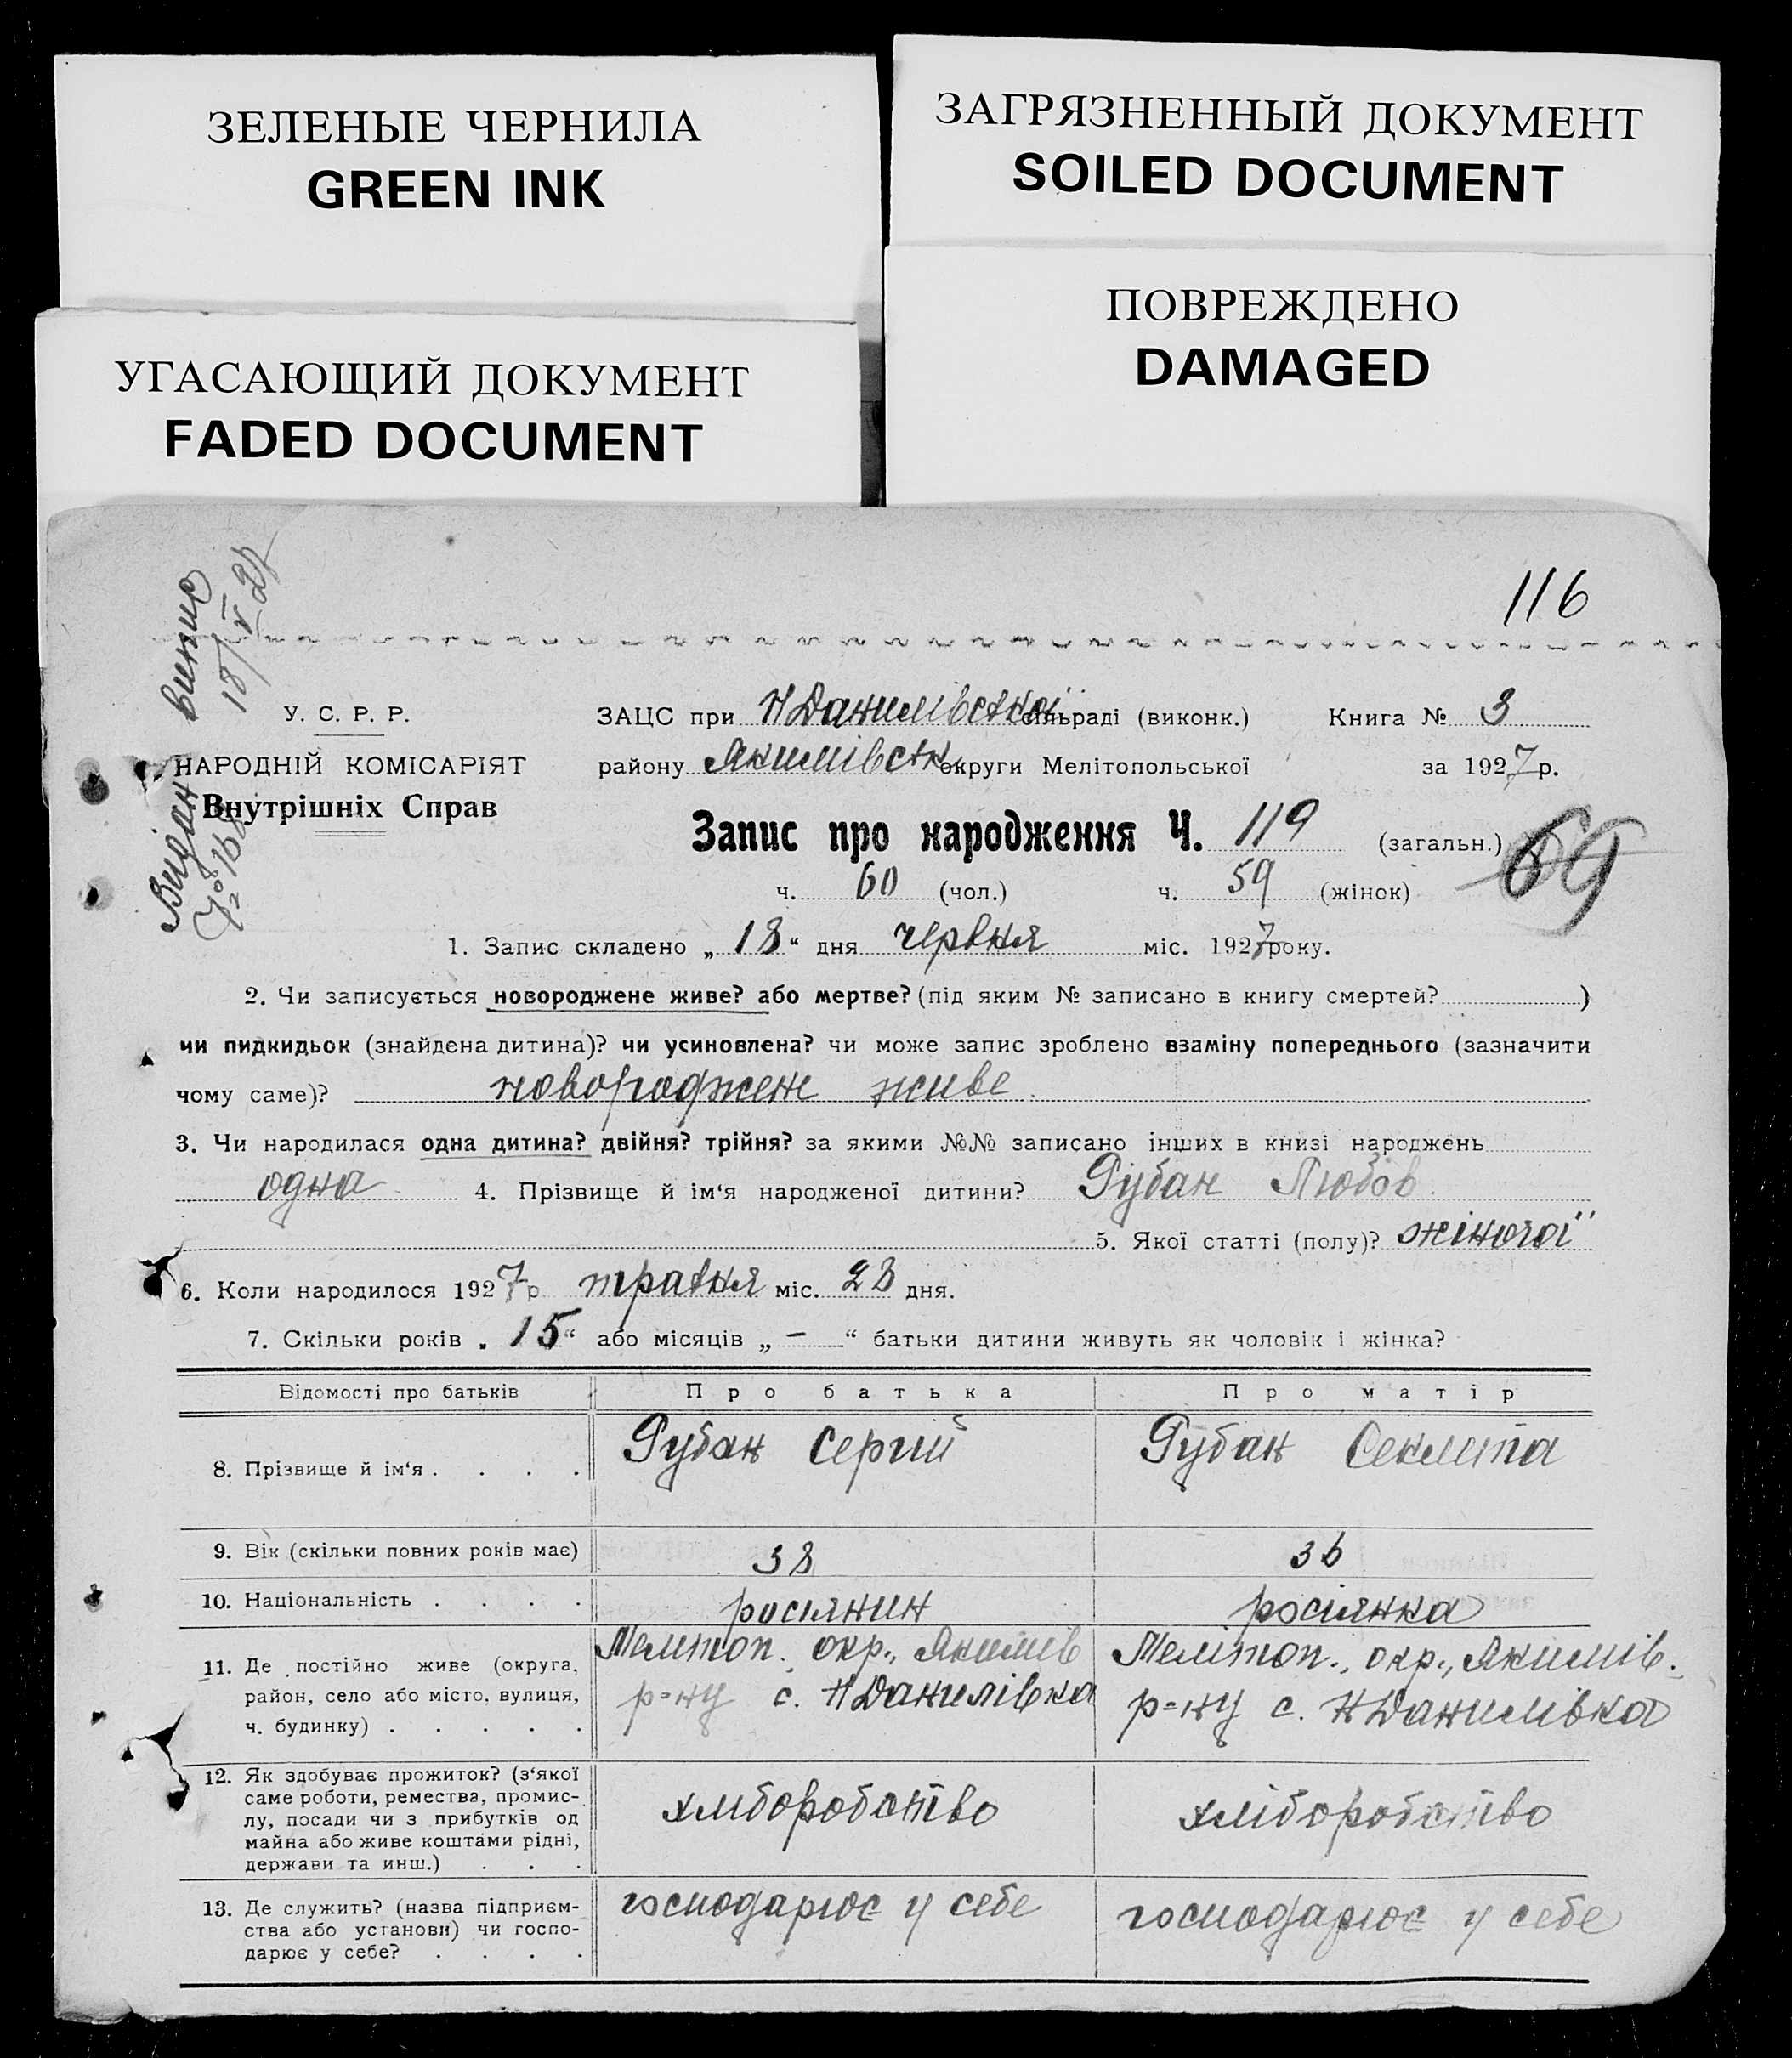 ЗЕЛЕНЫЕ ЧЕРНИЛА
GREEN INK
ЗАГРЯЗНЕННЫЙ ДОКУМЕНТ
SOILED DOCUMENT
УГАСАЮЩИЙ ДОКУМЕНТ
FADED DOCUMENT
ПОВРЕЖДЕНО
DAMAGED
116
Видан витис
У. С. Р. Р.
НАРОДНІЙ КОМІСАРІЯТ
Внутрішніх Справ
ЗАЦС при Н Данилівській сільраді (виконк.) Книга № 3
району Якимівськ округи Мелітопольської за 1927 р.
Запис про народження Ч. 119 (загальн.) 69
ч. 60 (чол.) ч. 59 (жінок)
1. Запис складено „ 18 “ дня червня міс. 1927 року.
2. Чи записується новороджене живе? або мертве? (під яким № записано в книгу смертей? )
чи пидкидьок (знайдена дитина)? чи усиновлена? чи може запис зроблено взаміну попереднього (зазначити
чому саме)? новороджене живе
3. Чи народилася одна дитина? двійня? трійня? за якими №№ записано інших в книзі народжень
одна 4. Прізвище й ім‘я народженої дитини? Рубан Любов
5. Якої статті (полу)? жіночої
6. Коли народилося 1927 р. травня міс. 28 дня.
7. Скільки років „ 15 “ або місяців „ — “ батьки дитини живуть як чоловік і жінка?
Відомості про батьків Про батька Про матір
8. Прізвище й ім‘я . . . . Рубан Сергий Рубан Секлета
9. Вік (скільки повних років має) 38 36
10. Національність . . . . росіянин росіянка
11. Де постійно живе (округа, район, село або місто, вулиця, ч. будинку) . . . . .
Мелітоп. окр., Якимів р=ну с. Н Данилівка
Мелітоп., окр., Якимів. р=ну с. Н Данилівка
12. Як здобуває прожиток? (з‘якої саме роботи, ремества, промис-
лу, посади чи з прибутків од
майна або живе коштами рідні,
держави та инш.) . . .
хліборобство хліборобство
13. Де служить? (назва підприєм-
ства або установи) чи госпо-
дарює у себе? . . . .
господарює у себе господарює у себе